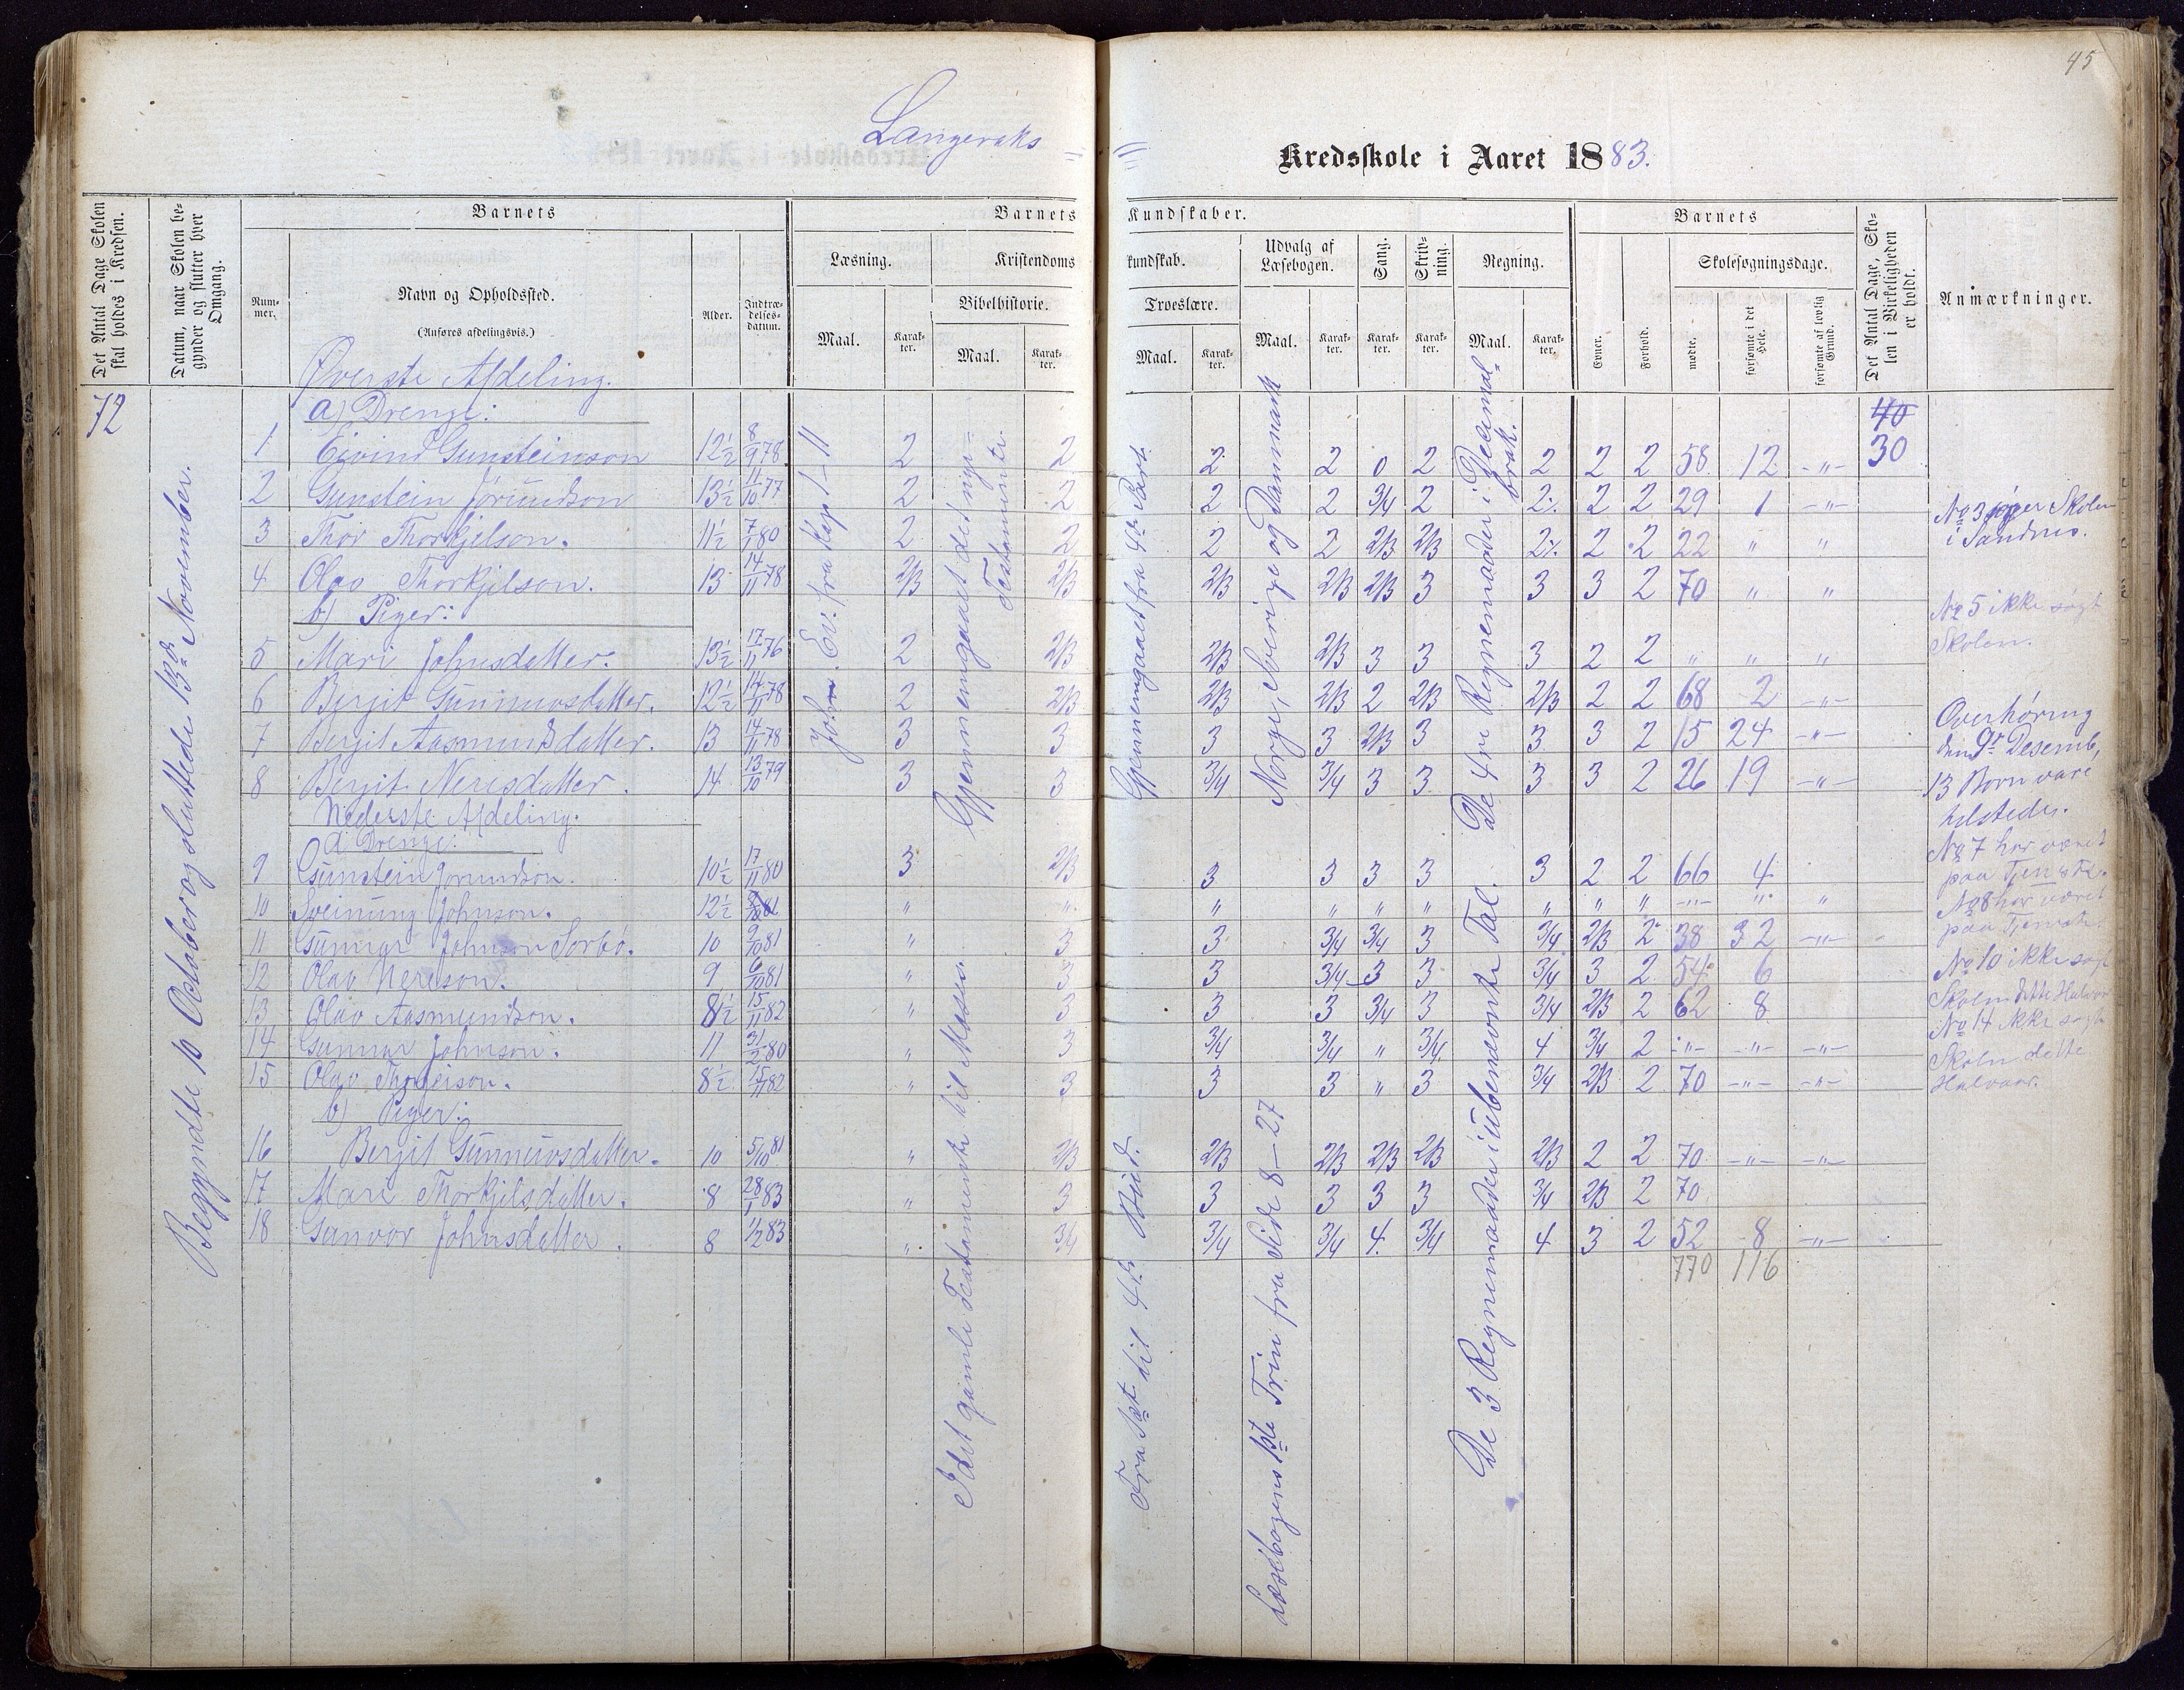 45
Langeraks
Kredsskole i Aaret 1883.
Det Antal Dage Skolen skal holdes i Kredsen.
Datum, naar Skolen begynder og slutter hver Omgang.
Barnets
Barnets
Kundskaber.
Barnets
Det Antal Dage, Skolen i Virkeligheden er holdt.
Anmærkninger.
Nummer.
Navn og Opholdssted.
(Anføres afdelingsvis.)
Alder.
Indtrædelsesdatum.
Læsning.
Kristendoms
kundskab.
Udvalg af Læsebogen.
Sang.
Skrivning.
Regning.
Evner.
Forhold.
Skolesøgningsdage.
Bibelhistorie.
Troeslære.
Maal.
Karakter.
Maal.
Karakter.
Maal.
Karakter.
Maal.
Karakter.
Karakter.
Karakter.
Maal.
Karakter.
mødte.
forsømte i det Hele.
forsømte af lovlig Grund.
72
Begyndte 10 October og sluttede 13de November.
Øverste Afdeling.
a) Drenge:
40
30
1 Eivind Gunsteinson 12½ 8/9 78 2 2 2 2 0 2 2 2 2 58 12 -"-
2 Gunstein Jørundson 13½ 11/10 77 2 2 2 2 3/4 2 2% 2 2 29 1 -"-
3 Thor Thorkjelson. 11½ 7/1 80 2 2 2 2 2/3 2/3 2% 2 2 22 " "
4 Olav Thorkjelson. 13 14/11 78 2/3 2/3 2/3 2/3 2/3 3 3 3 2 70 " "
b) Piger:
5 Mari Johnsdatter. 13½ 17/11 76 2 2/3 2/3 2/3 3 3 3 2 2 " " "
6 Bergit Gunnuvsdatter. 12½ 14/11 78 2 2/3 2/3 2/3 2 2/3 2/3 2 2 68 2 -"-
7 Bergit Aasmundsdatter. 13 14/11 78 3 3 3 3 2/3 3 3 3 2 15 24 -"-
8 Bergit Neresdatter. 14 13/10 79 3 3 3/4 3/4 3 3 3 3 2 26 19 -"-
Nederste Afdeling.
a) Drenge:
9 Gunstein Jorundson. 10½ 17/11 80 3 2/3 3 3 3 3 3 2 2 66 4
10 Sveinung Johnson. 12½ " " " " " " " " " -"- " "
11 Gunnar Johnson Sorbø. 10 9/10 81 " 3 3 3/4 3/4 3 3/4 2/3 2 38 32 -"-
12 Olav Nereson. 9 6/10 81 " 3 3 3/4 3 3 3/4 3 2 54 6
13 Olav Aasmundson. 8½ 15/11 82 " 3 3 3 3/4 3 3/4 2/3 2 62 8
14 Gunnar Johnson. 11 3/2 80 " 3 3/4 3/4 " 3/4 4 3/4 2 -"- -"- -"-
15 Olav 8½ 15/11 82 " 3 3 3 " 3 3/4 2/3 2 70 -"- -"-
b) Piger:
16 Bergit Gunnuvsdatter. 10 5/10 81 " 2/3 2/3 2/3 2/3 2/3 2/3 2 2 70 -"- -"-
17 Mari Thorkjelsdatter. 8 28/1 83 " 3 3 3 3 3 3/4 2/3 2 70
18 Gunvor Johnsdatter. 8 1/2 83 " 3/4 3/4 3/4 4 3/4 4 3 2 52 8 -"-
770 116
Joh. Ev. fra Kap 1-11
Gjennemgaaet det nye Testamente.
I det gamle Testamente til Moses.
Gjennemgaaet fra 4de Part.
Fra 1ste til 4de Bud.
Norge, Sverige og Danmark
Læsebogens 1ste Trin fra Side 8-27
De 4re Regnemaader i Decimalbrøk.
De 3 Regnemaader i ubenævnte Tal.
No 3 søger Skolen
i Sandnes.
No 5 ikke søgt
Skolen.
Overhøring
den 9de Desemb,
13 Born vare
tilstede.
No 7 har været
paa Tjeneste.
No 8 har været
paa Tjeneste.
No 10 ikke søgt
Skolen dette Halvaar
No 14 ikke søgt
Skolen dette
Halvaar.